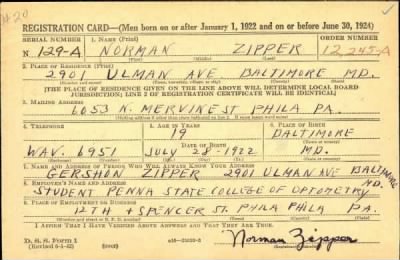 #20
REGISTRATION CARD—(Men born on or after January 1, 1922 and on or before June 30, 1924)
SERIAL NUMBER 1. NAME (Print) ORDER NUMBER
N 129-A NORMAN ZIPPER 12,245-A
(First) (Middle) (Last)
2. PLACE OF RESIDENCE (Print)
2901 ULMAN AVE BALTIMORE MD.
(Number and street) (Town, township, village, or city) (County) (State)
[THE PLACE OF RESIDENCE GIVEN ON THE LINE ABOVE WILL DETERMINE LOCAL BOARD
JURISDICTION; LINE 2 OF REGISTRATION CERTIFICATE WILL BE IDENTICAL]
3. MAILING ADDRESS
6053 N. MERVINE ST PHILA PA.
4. TELEPHONE 5. AGE IN YEARS 6. PLACE OF BIRTH
19 BALTIMORE
DATE OF BIRTH (Town or county)
WAV. 6951 JULY 28-1922 MD.
(Exchange) (Number) (Mo.) (Day) (Yr.) (State or country)
7. NAME AND ADDRESS OF PERSON WHO WILL ALWAYS KNOW YOUR ADDRESS
GERSHON ZIPPER 2901 ULMAN AVE BALTIMORE MD.
8. EMPLOYER'S NAME AND ADDRESS
STUDENT PENNA STATE COLLEGE OF OPTOMETRY
9. PLACE OF EMPLOYMENT OR BUSINESS
12TH + SPENCER ST. PHILA PHILA PA.
(Number and street or R. F. D. number) (Town) (County) (State)
I AFFIRM THAT I HAVE VERIFIED ABOVE ANSWERS AND THAT THEY ARE TRUE.
D. S. S. Form 1
Norman Zipper